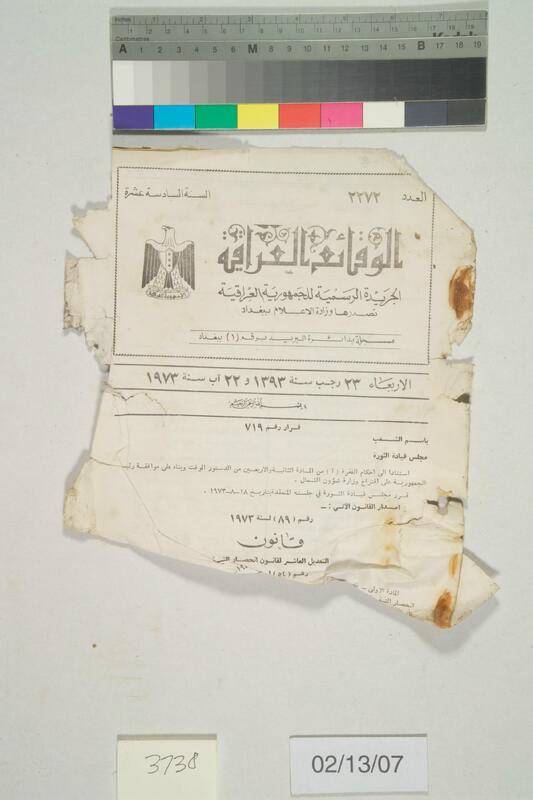 Inches 1 2 3 4 5 6 7
Centimetres
A 1 2 3 4 5 6 M 8 9 10 11 12 13 14 15 B 17 18 19
السنة السادسة عشرة
العدد ٢٢٧٢
الوقائع العراقية
الجريدة الرسمية للجمهورية العراقية
تصدرها وزارة الاعلام ببغداد
مسجلة بدائرة البريد برقم (١) بغداد
الاربعاء ٢٣ رجب سنة ١٣٩٣ و ٢٢ آب سنة ١٩٧٣
قرار رقم ٧١٩
باسم الشعب
مجلس قيادة الثورة
استنادا الى احكام الفقرة (أ) من المادة الثانية والاربعين من الدستور الموقت وبناء على موافقة
الجمهورية على اقتراح وزارة شؤون الشمال .
قرر مجلس قيادة الثورة في جلسته المنعقدة بتاريخ ١٨-٨-١٩٧٣ .
اصدار القانون الآتي :ـ
رقم (٨٩) لسنة ١٩٧٣
قانون
التعديل العاشر لقانون انحصار
رقم (٥٤)
المادة الاولى ـ
انحصار
3738
02/13/07